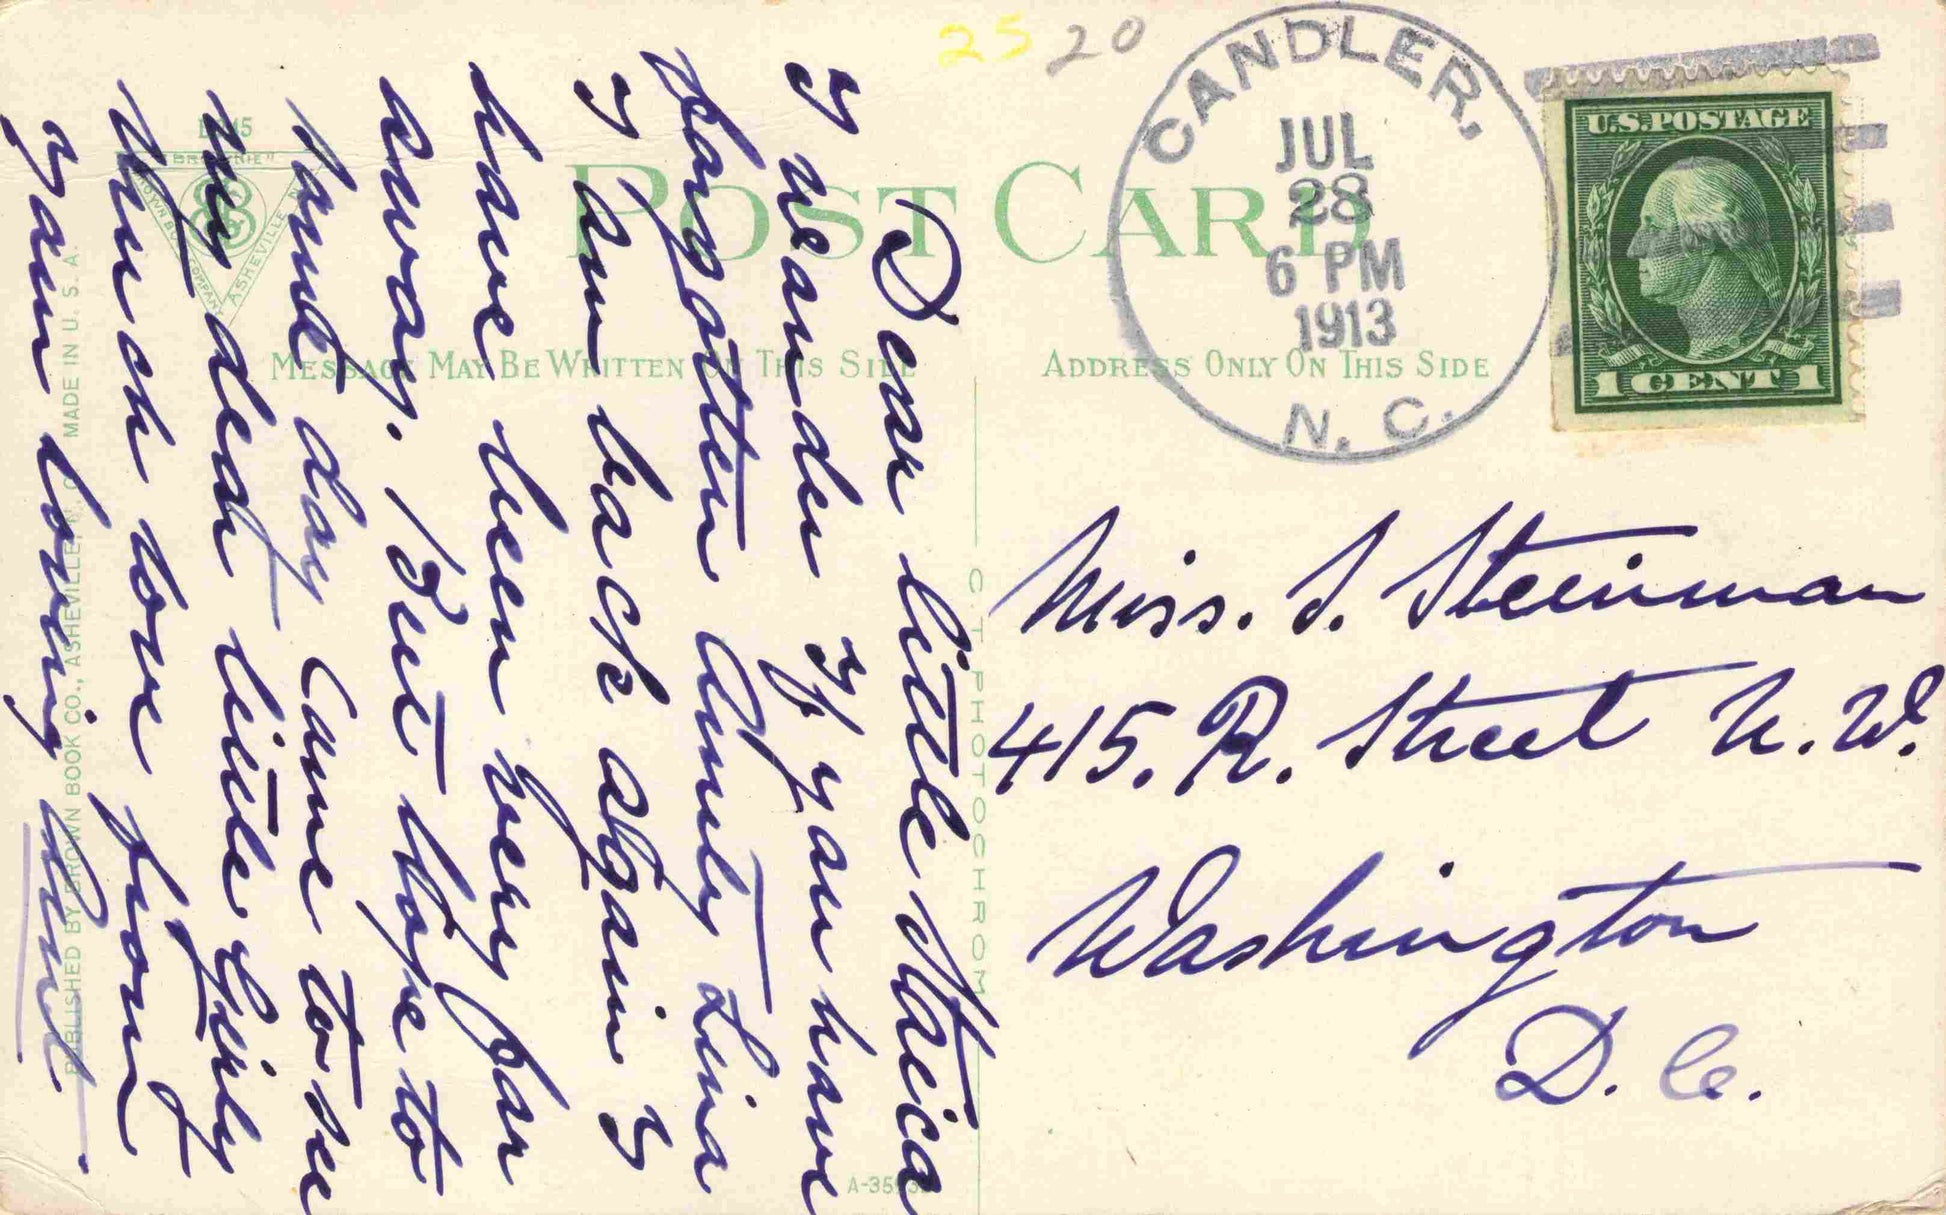 25 20
CANDLER,
JUL
28
6 PM
1913
N. C.
U.S. POSTAGE
1 CENT 1
POST CARD
MESSAGE MAY BE WRITTEN ON THIS SIDE
ADDRESS ONLY ON THIS SIDE
"BROWNIE"
BROWN BOOK COMPANY
ASHEVILLE N.C.
PUBLISHED BY BROWN BOOK CO., ASHEVILLE, N. C. MADE IN U. S. A.
C. T. PHOTOCHROM
Dear little
I wander if you have
forgotten Aunty Lina
I am back again I
have been very far
away. But hope to
some day came to see
my dear little
much love from
your loving
Miss. S. Steinman
415. R. Street N. W.
Washington
D. C.